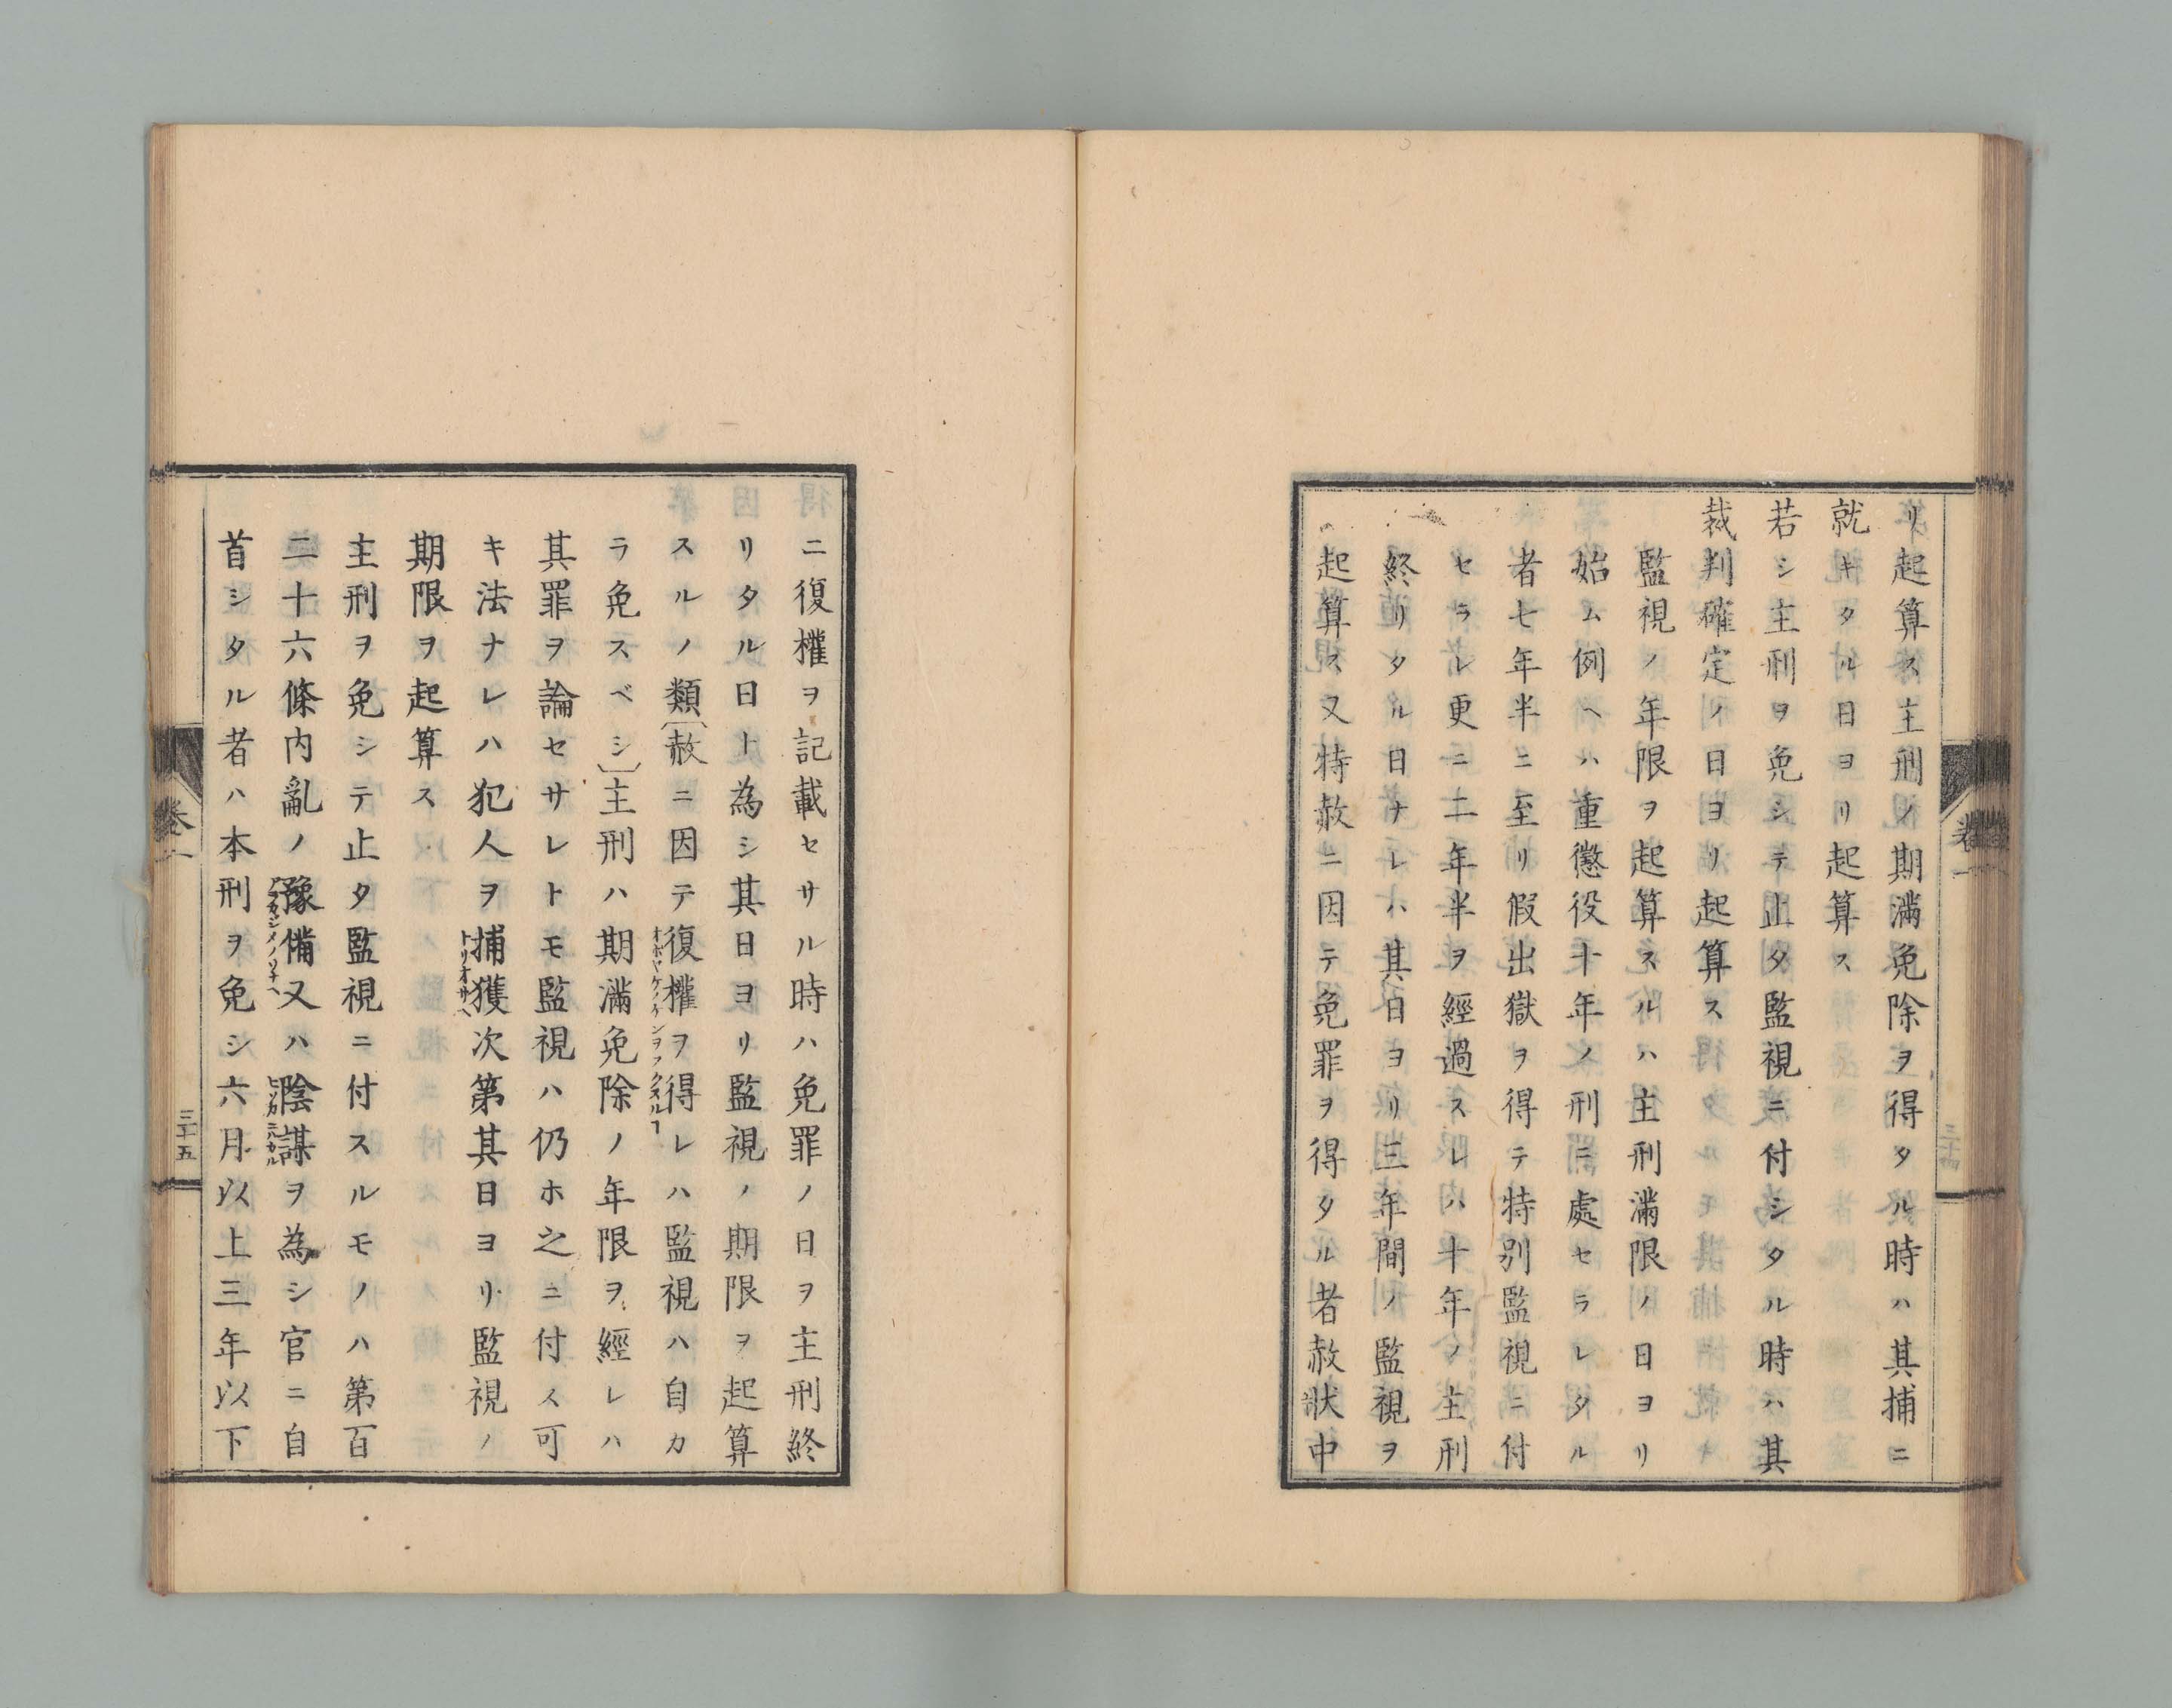 リ起算ス主刑ノ期滿免除ヲ得タル時ハ其捕ニ
就キタル日ヨリ起算ス
若シ主刑ヲ免シテ止タ監視ニ付シタル時ハ其
裁判確定ノ日ヨリ起算ス
監視ノ年限ヲ起算スルハ主刑滿限ノ日ヨリ
始ム例ヘハ重懲役十年ノ刑ニ處セラレタル
者七年半ニ至リ假出獄ヲ得テ特別監視ニ付
セラレ更ニ二年半ヲ經過スレハ十年ノ主刑
終リタル日ナレハ其日ヨリ三年間ノ監視ヲ
起算ス又特赦ニ因テ免罪ヲ得タル者赦狀中
卷一
ニ復權ヲ記載セサル時ハ免罪ノ日ヲ主刑終
リタル日ト為シ其日ヨリ監視ノ期限ヲ起算
スルノ類〔赦ニ因テ復權ヲ得レハ監視ハ自カ
ラ免スベシ〕主刑ハ期滿免除ノ年限ヲ經レハ
其罪ヲ論セサレトモ監視ハ仍ホ之ニ付ス可
キ法ナレハ犯人ヲ捕獲次第其日ヨリ監視ノ
トリオサヘ
期限ヲ起算ス
主刑ヲ免シテ止タ監視ニ付スルモノハ第百
二十六條内亂ノ豫備又ハ陰謀ヲ為シ官ニ自
首シタル者ハ本刑ヲ免シ六月以上三年以下
卷一
三十五